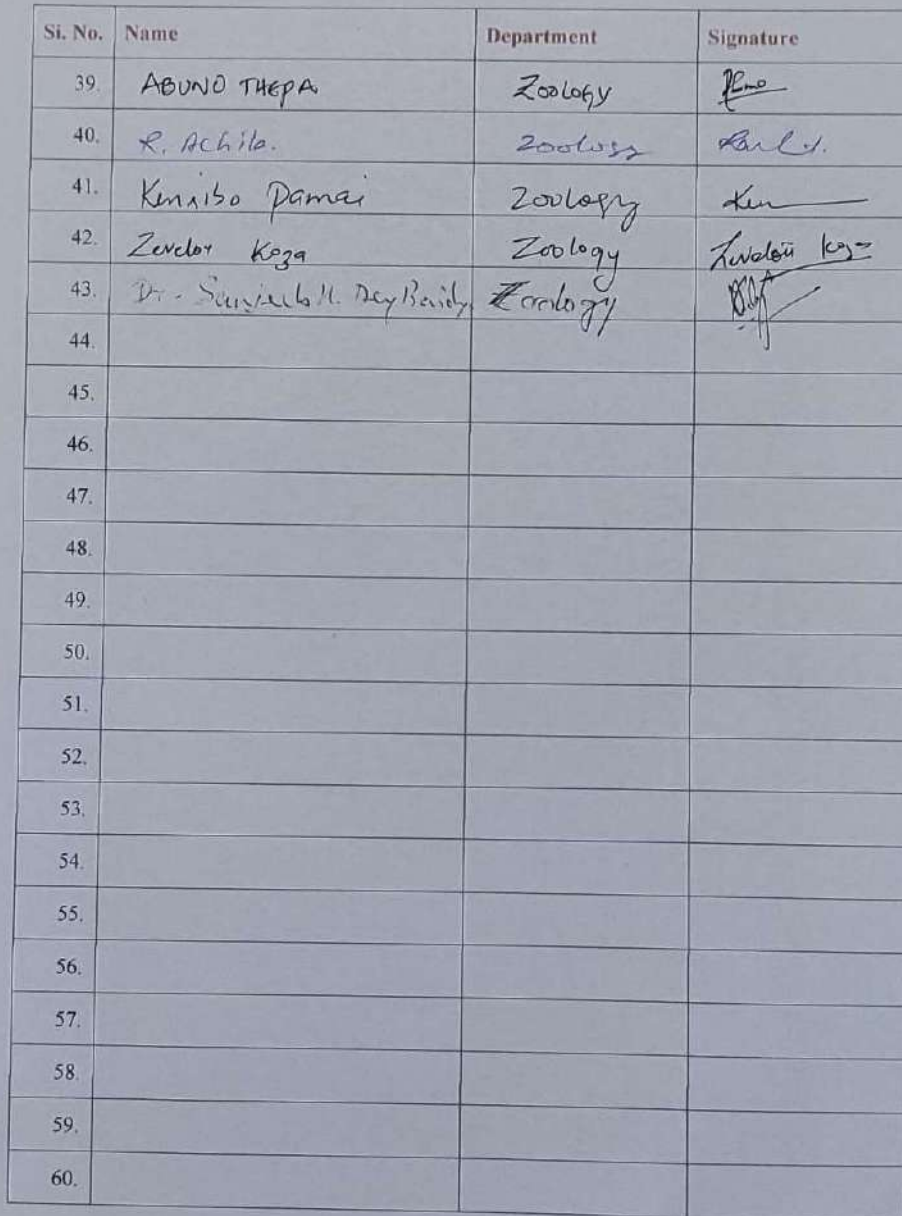 Si. No. Name Department Signature
39. ABUNO THEPA Zoology
40. R. Achila. Zoology
41. Kennibo Pamai Zoology Ken
42. Zevelou Koza Zoology Zevelou Koza
43. Dr. Dey Zoology
44.
45.
46.
47.
48.
49.
50.
51.
52.
53.
54.
55.
56.
57.
58.
59.
60.